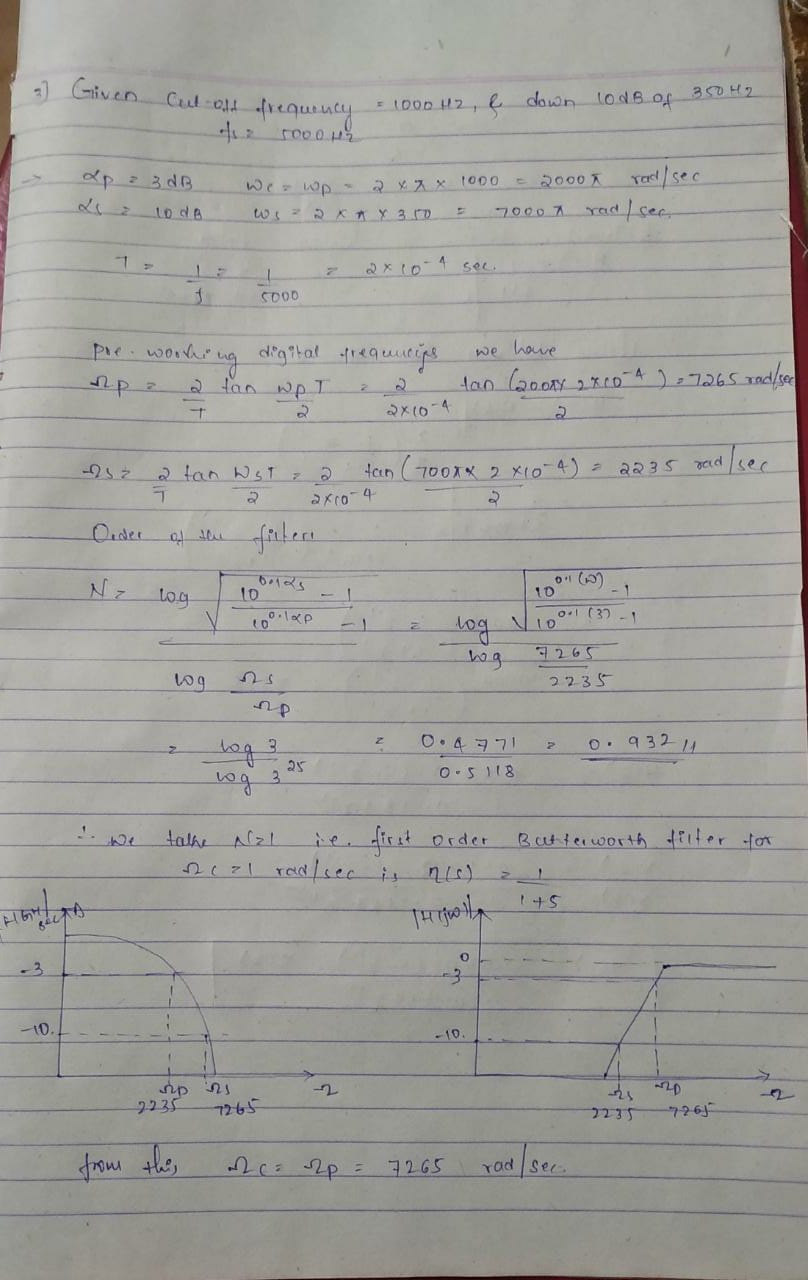 2) Given Cut-off frequency = 1000 Hz, & down 10dB of 350 Hz
fs = 5000 Hz
→ αp = 3 dB ωc = ωp = 2 × π × 1000 = 2000π rad/sec
αs = 10 dB ωs = 2 × π × 350 = 7000π rad/sec.
T = 1/f = 1/5000 = 2×10⁻⁴ sec.
Pre-working digital frequencies we have
Ωp = 2/T tan ωpT/2 = 2/2×10⁻⁴ tan (200π× 2×10⁻⁴)/2 = 7265 rad/sec
Ωs = 2/T tan ωsT/2 = 2/2×10⁻⁴ tan (700π× 2×10⁻⁴)/2 = 2235 rad/sec
Order of the filter:
N = log √(10^0.1αs - 1 / 10^0.1αp - 1) / log Ωs/Ωp = log √(10^0.1(10) - 1 / 10^0.1(3) - 1) / log 7265/2235
= log 3 / log 3.25 = 0.4771 / 0.5118 = 0.932 //
∴ We take N=1 i.e. first order Butterworth filter for
Ωc = 1 rad/sec is H(s) = 1/1+s
|H(jω)| 0 -3 -10
-3 -10.
Ωp Ωs Ω
2235 7265
Ωs Ωp Ω
2235 7265
from this, Ωc = Ωp = 7265 rad/sec.